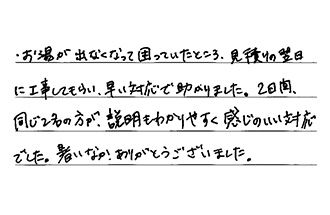 ・お湯が出なくなって困っていたところ、見積りの翌日
に工事してもらい、早い対応で助かりました。2日間、
同じ2名の方が、説明もわかりやすく感じのいい対応
でした。暑いなか、ありがとうございました。